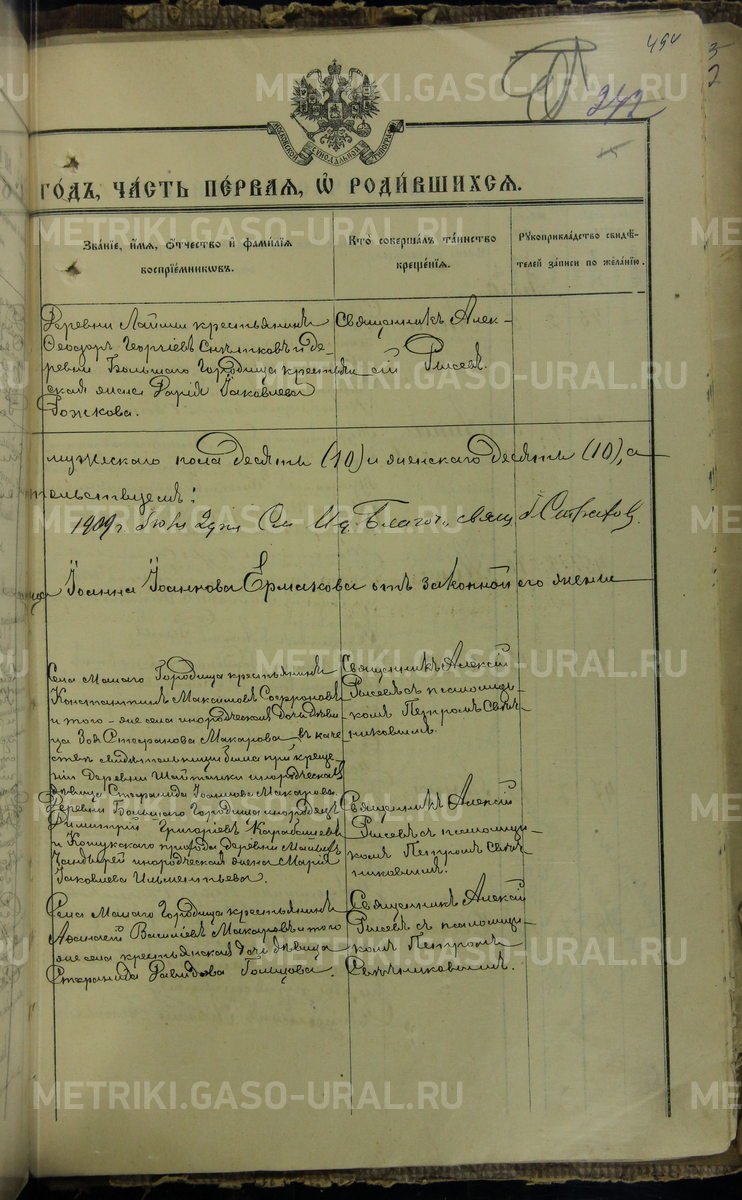 494
3
2
242
METRIKI.GASO-URAL.RU
МОСКОВСКОЙ СУНОДАЛЬНОЙ ТИПОГРАФ
ГОДЪ, ЧАСТЬ ПЕРВАЯ, Ѡ РОДИВШИХСЯ.
Званіе, имя, отчество и фамилія воспріемниковъ.
Кто совершалъ таинство крещенія.
Рукоприкладство свидѣтелей записи по желанію.
Деревни крестьянинъ
Ѳеодоръ Георгіевъ и де-
ревни Большаго Городища кресть-
ская жена Дарія Іаковлева
Божкова.
Священникъ Алек-
сій Рысевъ.
мужескаго пола десять (10) и женскаго десять (10), а
тельствуемъ:
1909 г. Благоч. свящ.
Іоанна Іоаннова Ермакова отъ законной его жены
Села Малаго Городища крестьянинъ
Константинъ Максимовъ Софроновъ
и того-же села инородческая дочь дѣви-
ца Зоя Стефанова Макарова, въ каче-
ствѣ свидѣтельницы была при креще-
ніи деревни Шайтанки инородческая
дѣвица Стефанида Іоаннова Макарова.
Священникъ Алексій
Рысевъ съ псаломщи-
комъ Петромъ Свѣч-
никовымъ.
Деревни Большаго Городища инородецъ
Димитрій Григоріевъ
и Кошукскаго прихода деревни
инородческая жена Марія
Іаковлева
Священникъ Алексій
Рысевъ съ псаломщи-
комъ Петромъ Свѣч-
никовымъ.
Села Малаго Городища крестьянинъ
Аѳанасій Василіевъ Макаровъ и того
же села крестьянская дочь дѣвица
Стефанида Давидова
Священникъ Алексій
Рысевъ съ псаломщи-
комъ Петромъ
Свѣчниковымъ.